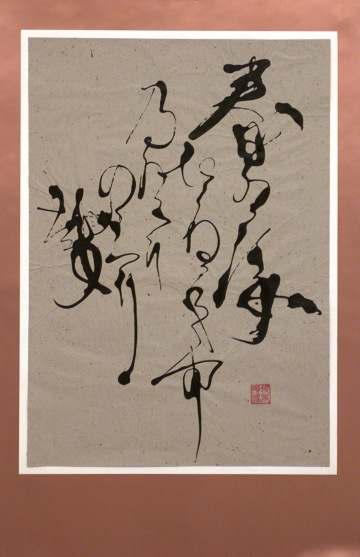 春の海
ひねもす
乃たり
のたり
哉